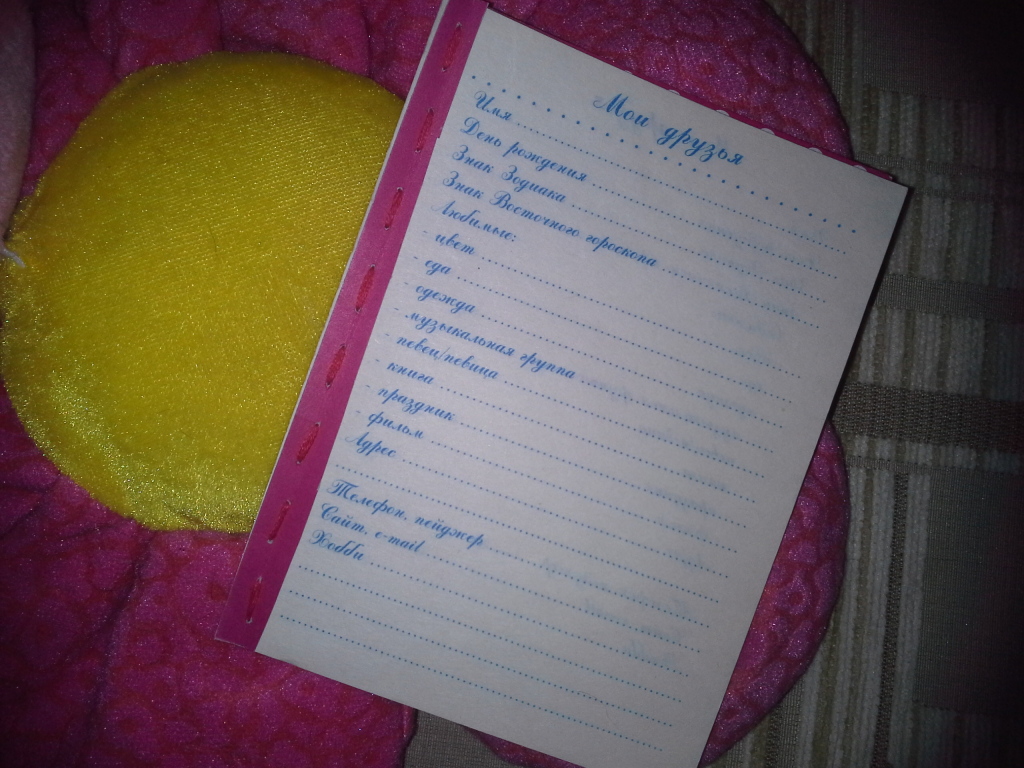 Мои друзья
Имя
День рождения
Знак Зодиака
Знак Восточного гороскопа
Любимые:
- цвет
- еда
- одежда
- музыкальная группа
- певец/певица
- книга
- праздник
- фильм
Адрес
Телефон, пейджер
Сайт, e-mail
Хобби